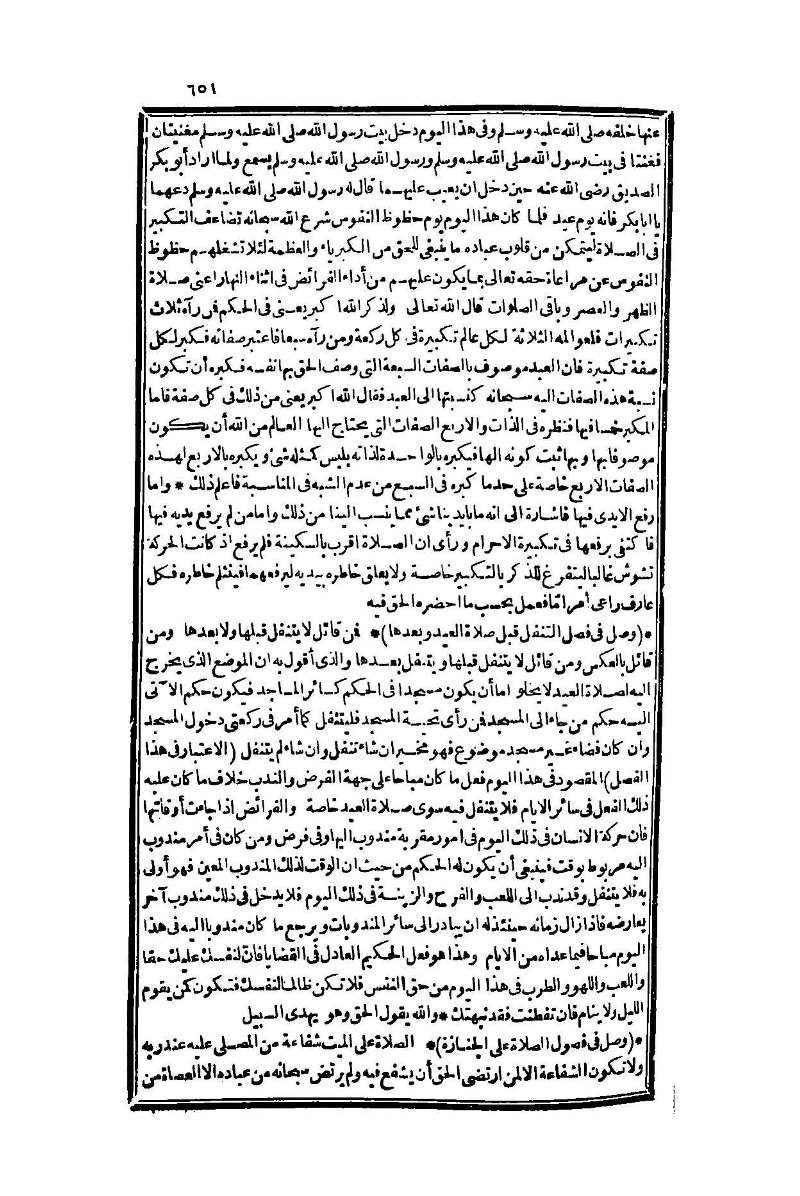 ٦٥١
عنها خلقه صلى الله عليه وسلم وفى هذا اليوم دخل بيت رسول الله صلى الله عليه وسلم مغنيتان
فغنتا فى بيت رسول الله صلى الله عليه وسلم ورسول الله صلى الله عليه وسلم يسمع ولما اراد أبو بكر
الصديق رضى الله عنه حين دخل ان يعيب عليهما قال له رسول الله صلى الله عليه وسلم دعهما
يا ابا بكر فانه يوم عيد فلما كان هذا اليوم يوم حظوظ النفوس شرع الله سبحانه تضاعف التكبير
فى الصلاة ليتمكن من قلوب عباده ما ينبغى للحق من الكبرياء والعظمة لئلا تشغلهم حظوظ
النفوس عن مراعاة حقه تعالى بما يكون عليهم من أداء الفرائض فى اثناء النهار اعنى صلاة
الظهر والعصر وباقى الصلوات قال الله تعالى ولذكر الله اكبر يعنى فى الحكم فمن رآه ثلاث
تكبيرات فلعوالمه الثلاثة لكل عالم تكبيرة فى كل ركعة ومن رآه سبعا فاعتبر صفاته فكبر لكل
صفة تكبيرة فان العبد موصوف بالصفات السبعة التى وصف الحق بها نفسه فكبره أن تكون
نسبة هذه الصفات اليه سبحانه كنسبتها الى العبد فقال الله اكبر يعنى من ذلك فى كل صفة فاما
المكبر خمسا فيها فنظره فى الذات والاربع الصفات التى يحتاج اليها العالم من الله أن يكون
موصوفا بها وبها ثبت كونه الها فيكبره بالواحدة لذاته بليس كمثله شئ ويكبره بالاربع لهذه
الصفات الاربع خاصة على حد ما كبره فى السبع من عدم الشبه فى المناسبة فاعلم ذلك * واما
رفع الايدى فيها فاشارة الى انه ما بايدينا شئ مما ينسب الينا من ذلك واما من لم يرفع يديه فيها
فاكتفى برفعها فى تكبيرة الاحرام ورأى ان الصلاة اقرب بالسكينة فلم يرفع اذ كانت الحركة
تشوش غالبا ليتفرغ للذكر بالتكبير خاصة ولا يعلق خاطره بيديه ليرفعهما فينثلم خاطره فكل
عارف راعى أمرا ما فعمل بحسب ما احضره الحق فيه
*(وصل فى فصل التنفل قبل صلاة العيد وبعدها)* فمن قائل لا يتنفل قبلها ولا بعدها ومن
قائل بالعكس ومن قائل لا يتنفل قبلها ويتنفل بعدها والذى أقول به ان الموضع الذى يخرج
اليه لصلاة العيد لا يخلو اما أن يكون مسجدا فى الحكم كسائر المساجد فيكون حكم الآتى
اليه حكم من جاء الى المسجد فمن رأى تحية المسجد فليتنفل كما أمر فى ركعتى دخول المسجد
وان كان فضاء غير مسجد موضوع فهو مخير ان شاء تنفل وان شاء لم يتنفل (الاعتبار فى هذا
الفصل) المقصود فى هذا اليوم فعل ما كان مباحا على جهة الفرض والندب خلاف ما كان عليه
ذلك الفعل فى سائر الايام فلا يتنفل فيه سوى صلاة العيد خاصة والفرائض اذا جاءت أوقاتها
فان حركة الانسان فى ذلك اليوم فى امور مقربة مندوب اليها وفى فرض ومن كان فى أمر مندوب
اليه مربوط بوقت فينبغى أن يكون له الحكم من حيث ان الوقت لذلك المندوب المعين فهو أولى
به فلا يتنفل وقد ندب الى اللعب والفرح والزينة فى ذلك اليوم فلا يدخل فى ذلك مندوب آخر
يعارضه فاذا زال زمانه حينئذ له ان يبادر الى سائر المندوبات ويرجع ما كان مندوبا اليه فى هذا
اليوم مباحا فيما عداه من الايام وهذا هو فعل الحكيم العادل فى القضايا فان لنفسك عليك حقا
واللعب واللهو والطرب فى هذا اليوم من حق النفس فلا تكن ظالما لنفسك فتكون كمن يقوم
الليل ولا ينام فان تفطنت فقد نبهتك * والله يقول الحق وهو يهدى السبيل
*(وصل فى فصول الصلاة على الجنازة)* الصلاة على الميت شفاعة من المصلى عليه عند ربه
ولا تكون الشفاعة الا لمن ارتضى الحق أن يشفع فيه ولم يرتض سبحانه من عباده الا العصاة من